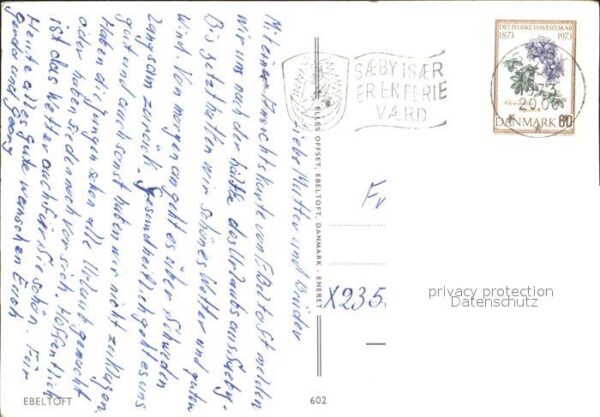 Liebe Mutter und Brüder
Mit einer Ansichtskarte von Ebeltoft melden
wir uns nach der hälfte des Urlaubs aus Säby.
Bis jetzt hatten wir schönes Wetter und guten
Wind. Von morgen an geht es über Schweden
langsam zurück. Gesundheitlich geht es uns
gut und auch sonst haben wir nicht zu klagen.
Haben die Jungen schon alle Urlaub gemacht
oder haben sie den noch vor sich. Hoffentlich
ist das Wetter auch für Sie schön. Für
Heute alles gute wünschen Euch
Gerda und Georg
EBELTOFT
602
ELLES OFFSET, EBELTOFT, DANMARK - ENERET
SÆBY ISÆR
ER EN FERIE
VÆRD
DET JYDSKE HAVESELSKAB
1873 1973
20.00
DANMARK 60
Fr
X235
privacy protection
Datenschutz